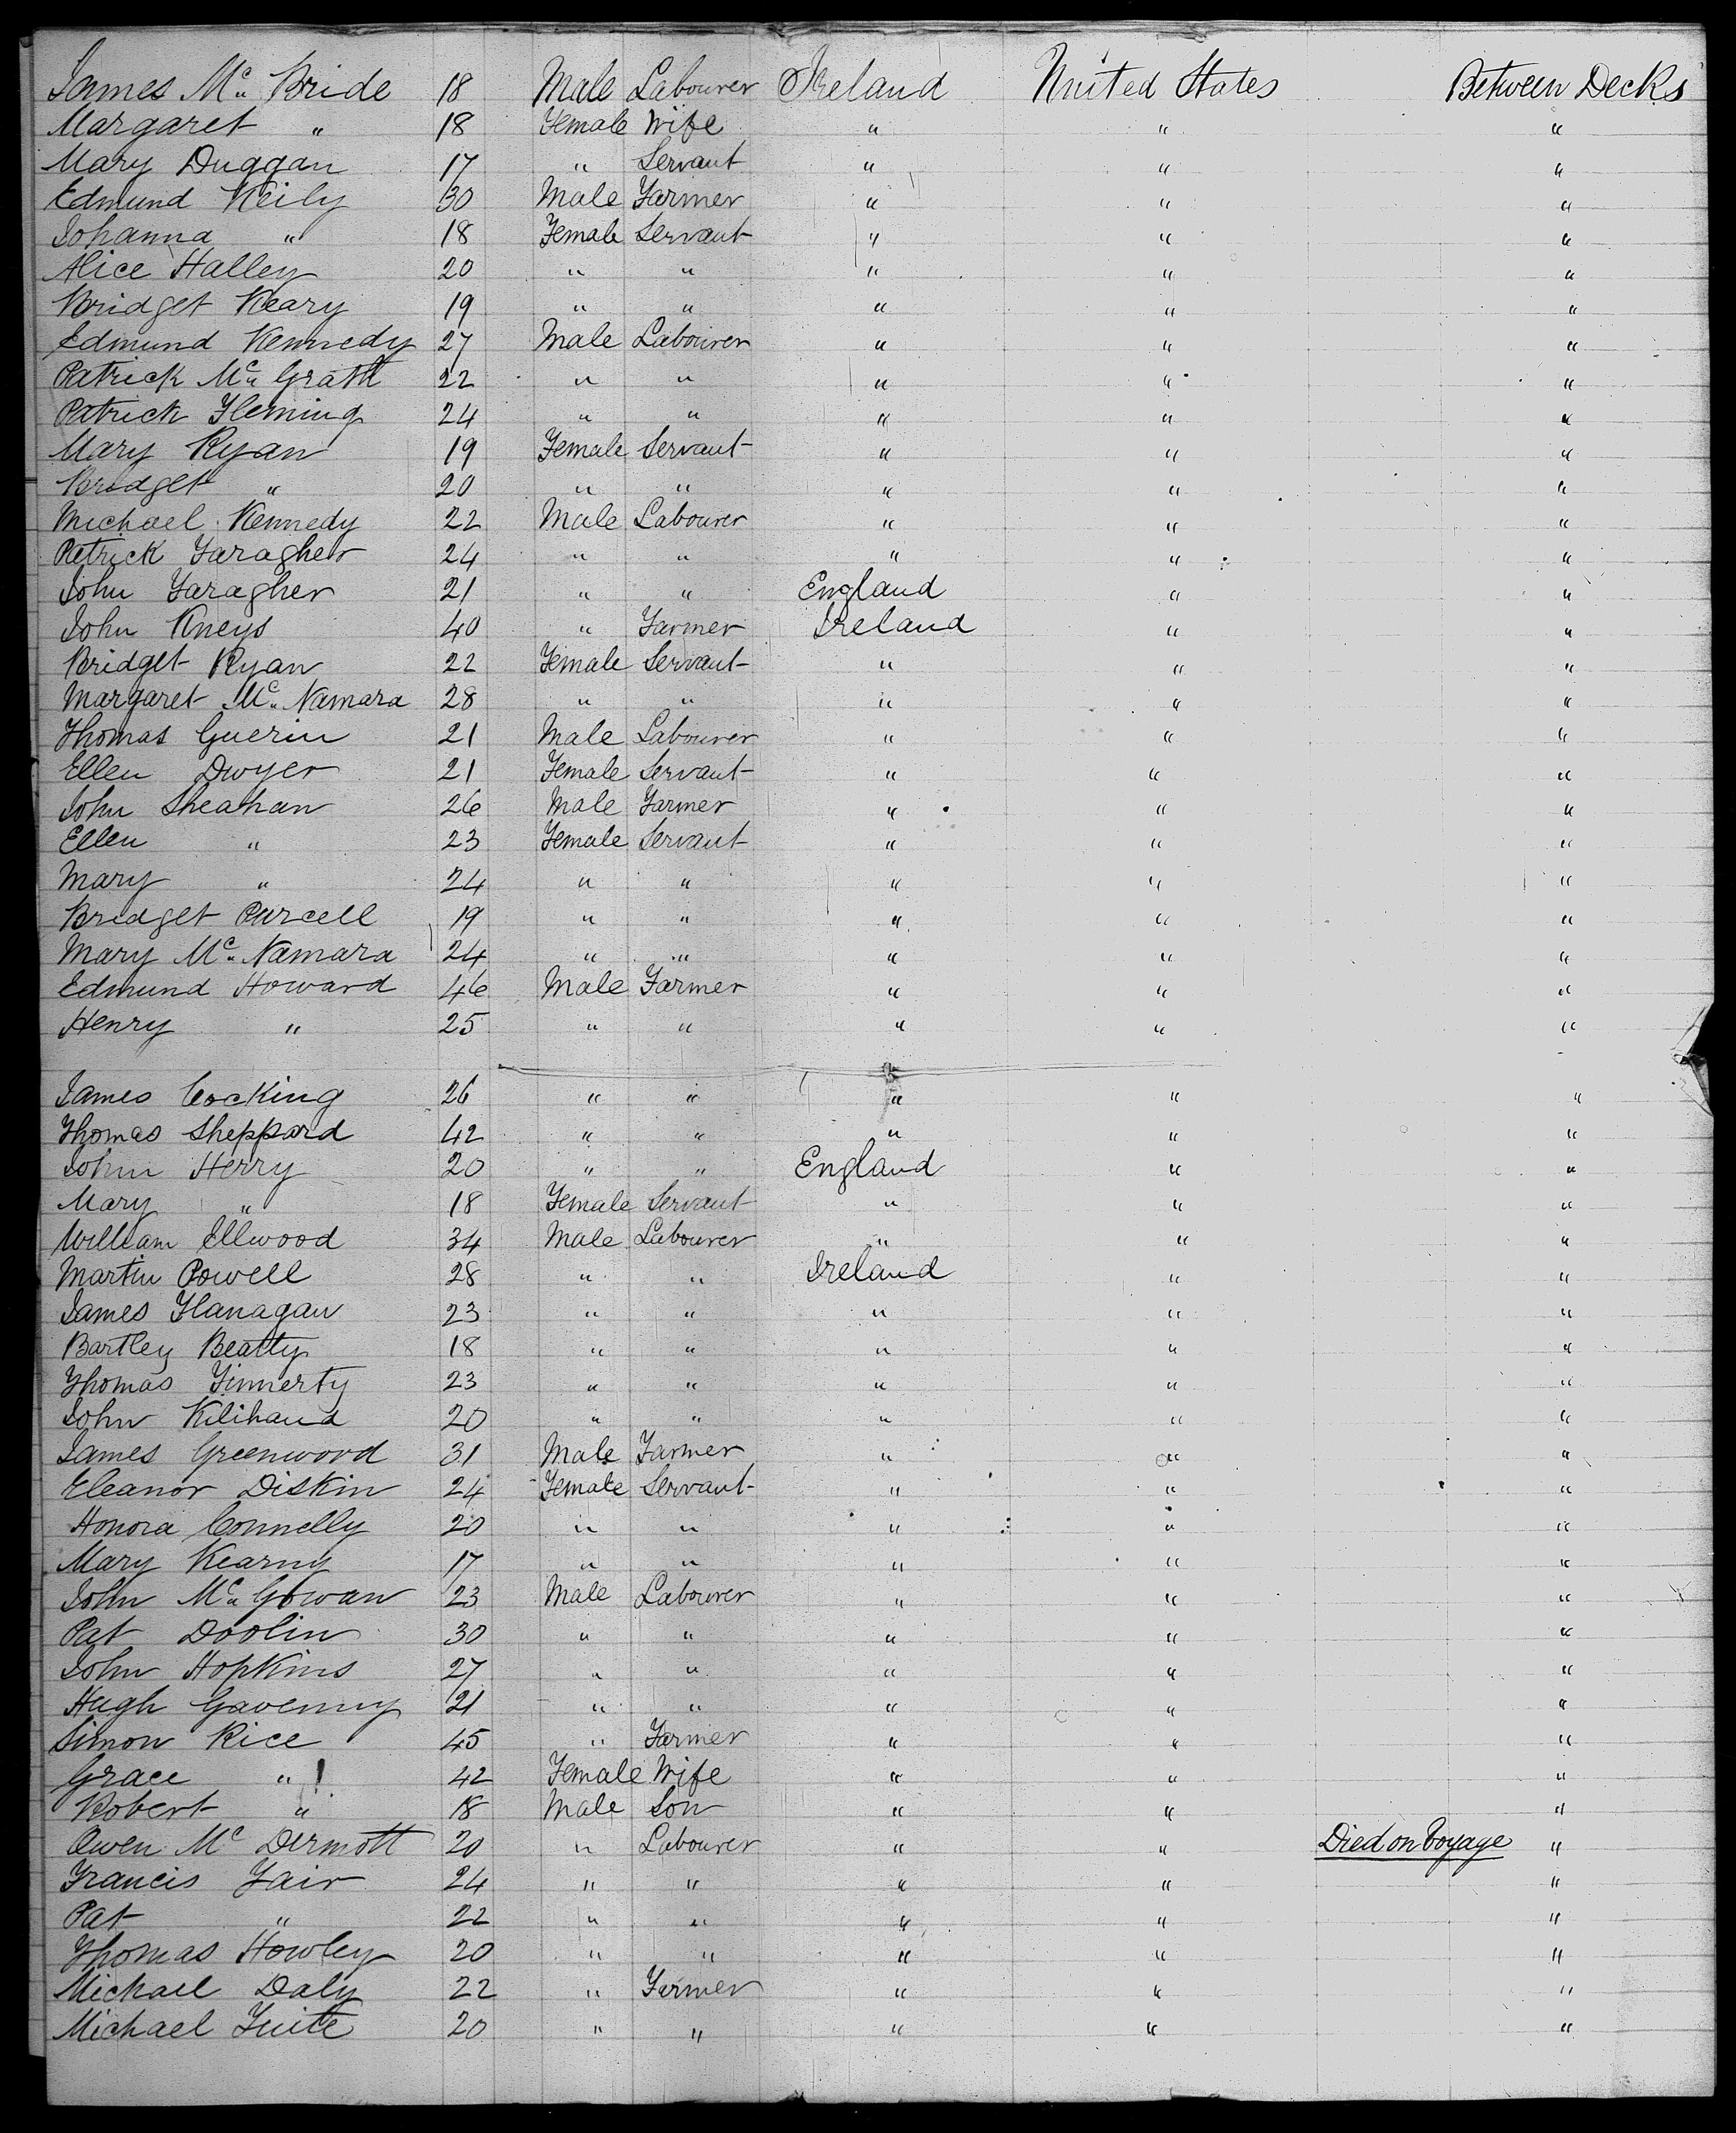 James Mc Bride 18 Male Labourer Ireland United States Between Decks
Margaret " 18 Female Wife " " "
Mary Duggan 17 " Servant " " "
Edmund Keily 30 Male Farmer " " "
Johanna " 18 Female Servant " " "
Alice Halley 20 " " " " "
Bridget Keary 19 " " " " "
Edmund Kennedy 27 Male Labourer " " "
Patrick Mc Grath 22 " " " " "
Patrick Fleming 24 " " " " "
Mary Ryan 19 Female Servant " " "
Bridget " 20 " " " " "
Michael Kennedy 22 Male Labourer " " "
Patrick Faragher 24 " " " " "
John Faragher 21 " " England " "
John Kneys 40 " Farmer Ireland " "
Bridget Ryan 22 Female Servant " " "
Margaret Mc Namara 28 " " " " "
Thomas Guerin 21 Male Labourer " " "
Ellen Dwyer 21 Female Servant " " "
John Sheahan 26 Male Farmer " " "
Ellen " 23 Female Servant " " "
Mary " 24 " " " " "
Bridget Purcell 19 " " " " "
Mary Mc Namara 24 " " " " "
Edmund Howard 46 Male Farmer " " "
Henry " 25 " " " " "
James Cocking 26 " " " " "
Thomas Sheppard 42 " " " " "
John Herry 20 " " England " "
Mary " 18 Female Servant " " "
William Ellwood 34 Male Labourer " " "
Martin Powell 28 " " Ireland " "
James Flanagan 23 " " " " "
Bartley Beatty 18 " " " " "
Thomas Finnerty 23 " " " " "
John Kilihand 20 " " " " "
James Greenwood 31 Male Farmer " " "
Eleanor Diskin 24 Female Servant " " "
Honora Connelly 20 " " " " "
Mary Kearny 17 " " " " "
John Mc Gowan 23 Male Labourer " " "
Pat Doolin 30 " " " " "
John Hopkins 27 " " " " "
Hugh Gavenny 21 " " " " "
Simon Rice 45 " Farmer " " "
Grace " 42 Female Wife " " "
Robert " 18 Male Son " " "
Owen Mc Dermott 20 " Labourer " " Died on Voyage "
Francis Fair 24 " " " " "
Pat " 22 " " " " "
Thomas Howley 20 " " " " "
Michael Daly 22 " Farmer " " "
Michael Tuite 20 " " " " "